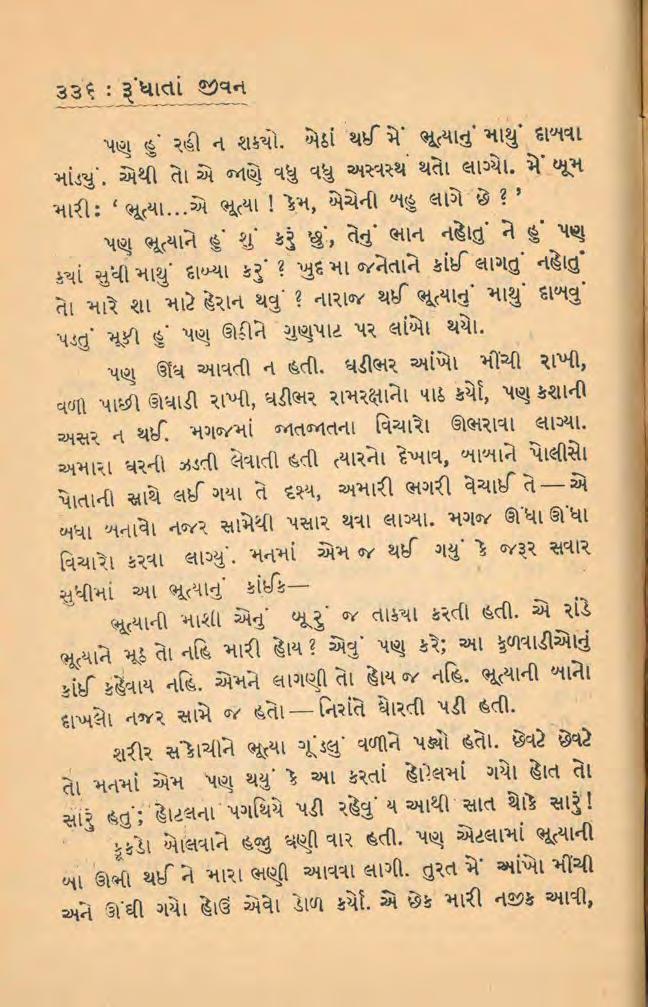 ૩૩૬ : રૂંધાતાં જીવન
પણ હું રહી ન શક્યો. બેઠાં થઈ મેં ભૂત્યાનું માથું દાબવા
માંડ્યું. એથી તો એ જાણે વધુ વધુ અસ્વસ્થ થતો લાગ્યો. મેં બૂમ
મારી: ‘ ભૂત્યા...એ ભૂત્યા ! કેમ, બેચેની બહુ લાગે છે ? ’
પણ ભૂત્યાને હું શું કરું છું, તેનું ભાન નહોતું ને હું પણ
ક્યાં સુધી માથું દાબ્યા કરું ? ખુદ મા જનેતાને કાંઈ લાગતું નહોતું
તો મારે શા માટે હેરાન થવું ? નારાજ થઈ ભૂત્યાનું માથું દાબવું
પડતું મૂકી હું પણ ઊઠીને ગુણપાટ પર લાંબો થયો.
પણ ઊંઘ આવતી ન હતી. ઘડીભર આંખો મીંચી રાખી,
વળી પાછી ઊઘાડી રાખી, ઘડીભર રામરક્ષાનો પાઠ કર્યો, પણ કશાની
અસર ન થઈ. મગજમાં જાતજાતના વિચારો ઊભરાવા લાગ્યા.
અમારા ઘરની ઝડતી લેવાતી હતી ત્યારનો દેખાવ, બાબાને પોલીસો
પોતાની સાથે લઈ ગયા તે દૃશ્ય, અમારી ભગરી વેચાઈ તે — એ
બધા બનાવો નજર સામેથી પસાર થવા લાગ્યા. મગજ ઊંધા ઊંધા
વિચારો કરવા લાગ્યું. મનમાં એમ જ થઈ ગયું કે જરૂર સવાર
સુધીમાં આ ભૂત્યાનું કાંઈક—
ભૂત્યાની માશી એનું બૂરું જ તાક્યા કરતી હતી. એ રાંડે
ભૂત્યાને મૂઠ તો નહિ મારી હોય ? એવું પણ કરે; આ કુળવાડીઓનું
કાંઈ કહેવાય નહિ. એમને લાગણી તો હોય જ નહિ. ભૂત્યાની બાનો
દાખલો નજર સામે જ હતો — નિરાંતે ઘોરતી પડી હતી.
શરીર સંકોચીને ભૂત્યા ગૂંડલું વળીને પડ્યો હતો. છેવટે છેવટે
તો મનમાં એમ પણ થયું કે આ કરતાં હોટેલમાં ગયો હોત તો
સારું હતું; હોટલના પગથિયે પડી રહેવું ય આથી સાત થોકે સારું!
કૂકડો બોલવાને હજી ઘણી વાર હતી. પણ એટલામાં ભૂત્યાની
બા ઊભી થઈ ને મારા ભણી આવવા લાગી. તુરત મેં આંખો મીંચી
અને ઊંઘી ગયો હોઉં એવો ડોળ કર્યો. એ છેક મારી નજીક આવી,